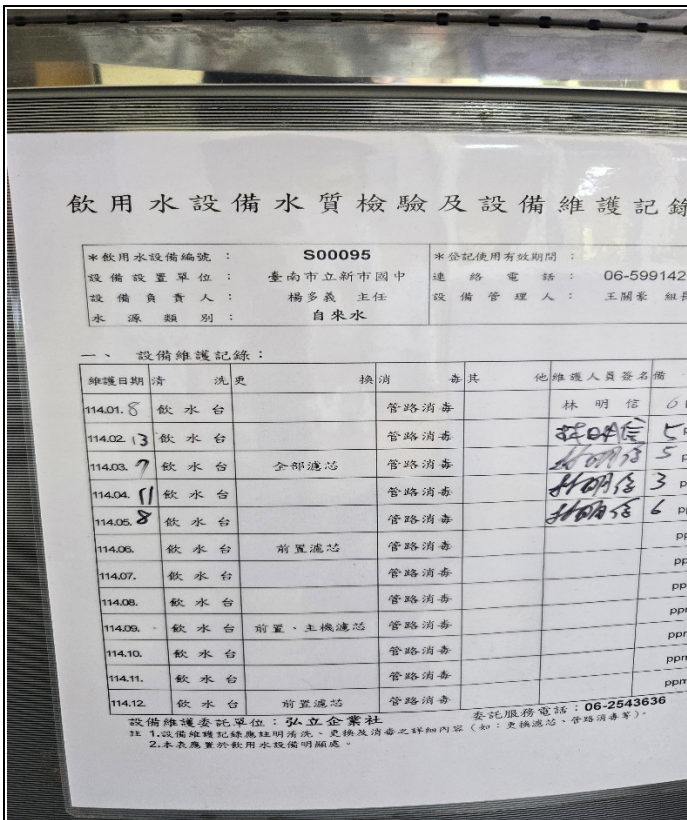 飲用水設備水質檢驗及設備維護記錄
＊飲用水設備編號 ： S00095 ＊登記使用有效期間 ：
設備設置單位 ： 臺南市立新市國中 連絡電話 ： 06-599142
設備負責人 ： 楊多義 主任 設備管理人 ： 王關豪 組長
水源類別 ： 自來水
一、 設備維護記錄：
維護日期 清洗 更換 消毒 其他 維護人員簽名 備
114.01.8 飲水台 管路消毒 林明信 6
114.02.13 飲水台 管路消毒 林明信 5 p
114.03.7 飲水台 全部濾芯 管路消毒 林明信 5 p
114.04.11 飲水台 管路消毒 林明信 3 p
114.05.8 飲水台 管路消毒 林明信 6 pp
114.06. 飲水台 前置濾芯 管路消毒 pp
114.07. 飲水台 管路消毒 pp
114.08. 飲水台 管路消毒 pp
114.09. 飲水台 前置、主機濾芯 管路消毒 ppm
114.10. 飲水台 管路消毒 ppm
114.11. 飲水台 管路消毒 ppm
114.12. 飲水台 前置濾芯 管路消毒 ppm
設備維護委託單位：弘立企業社 委託服務電話：06-2543636
註 1.設備維護記錄應註明清洗、更換及消毒之詳細內容（如：更換濾芯、管路消毒等）。
2.本表應置於飲用水設備明顯處。